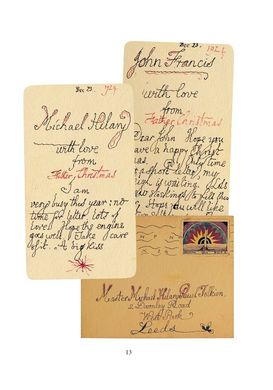 Dec 23. 1924
Michael Hilary
with love
from
Father Christmas
I am
very busy this year: no
time for letter. lots of
love. Hope the engine
goes well. Take care
of it. A big kiss
Dec. 23. 1924
John Francis
with love
from
Father Christmas
Dear John Hope you
have a happy
time
a short letter, my
is waiting.
stockings to fill this
you will like
Master Michael Hilary Reuel Tolkien
2 Darnley Road
West Park
Leeds
13